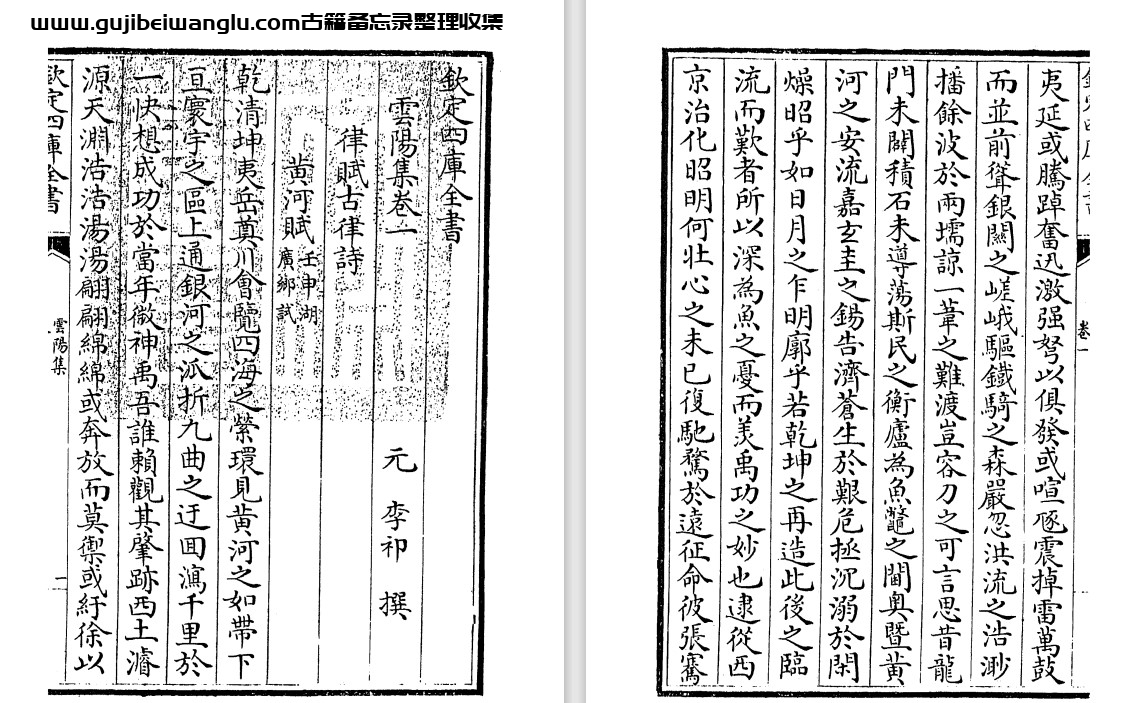 www.gujibeiwanglu.com古籍备忘录整理收集
欽定四庫全書
雲陽集卷一
元 李祁 撰
律賦古律詩
黃河賦 壬申湖
廣鄉試
乾清坤夷岳奠川會覽四海之縈環見黃河之如帶下
亘寰宇之區上通銀河之派折九曲之迂囬瀉千里於
一快想成功於當年微神禹吾誰賴觀其肇跡西土濬
源天淵浩浩湯湯翩翩綿綿或奔放而莫禦或紆徐以
欽定四庫全書 雲陽集 一
卷一
夷延或騰踔奮迅激强弩以俱發或喧豗震掉雷萬鼓
而並前聳銀闕之嵯峨驅鐵騎之森嚴忽洪流之浩渺
播餘波於兩壖諒一葦之難渡豈容刀之可言思昔龍
門未闢積石未導蕩斯民之衡廬為魚鼈之閫奧暨黃
河之安流嘉玄圭之錫告濟蒼生於艱危拯沉溺於閑
燥昭乎如日月之乍明廓乎若乾坤之再造此後之臨
流而歎者所以深為魚之憂而羡禹功之妙也逮從西
京治化昭明何壯心之未已復馳騖於遠征命彼張騫